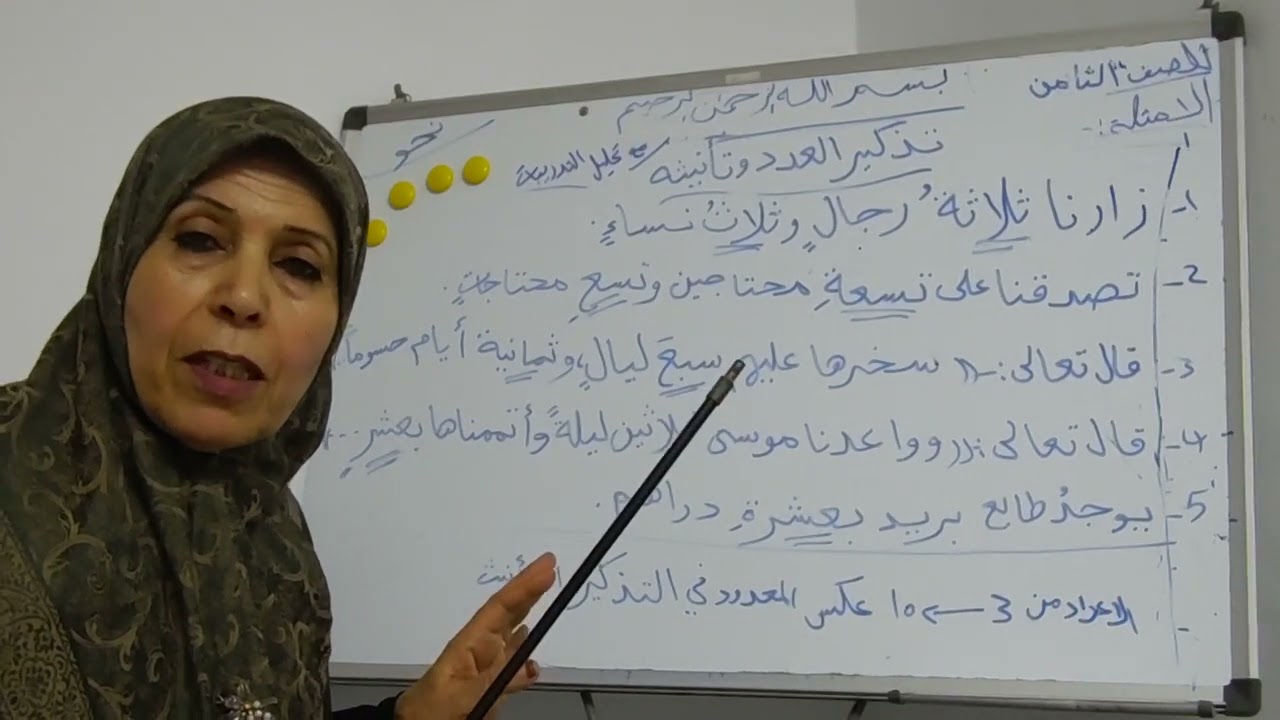 للصف الثامن
الامثلة:-
بسم الله الرحمن الرحيم
نحو
تذكير العدد وتأنيثه مع تحليل التدريبات
1- زارنا ثلاثةُ رجالٍ وثلاثُ نساءٍ.
2- تصدقنا على تسعةِ محتاجين وتسعِ محتاجاتٍ.
3- قال تعالى:- سخرها عليهم سبعَ ليالٍ، وثمانية أيام حسوماً..
4- قال تعالى: وواعدنا موسى ثلاثين ليلةً وأتممناها بعشرٍ...
5- يوجدُ طابع بريد بعشرةِ دراهم.
الاعداد من 3 ← 10 عكس المعدود في التذكير